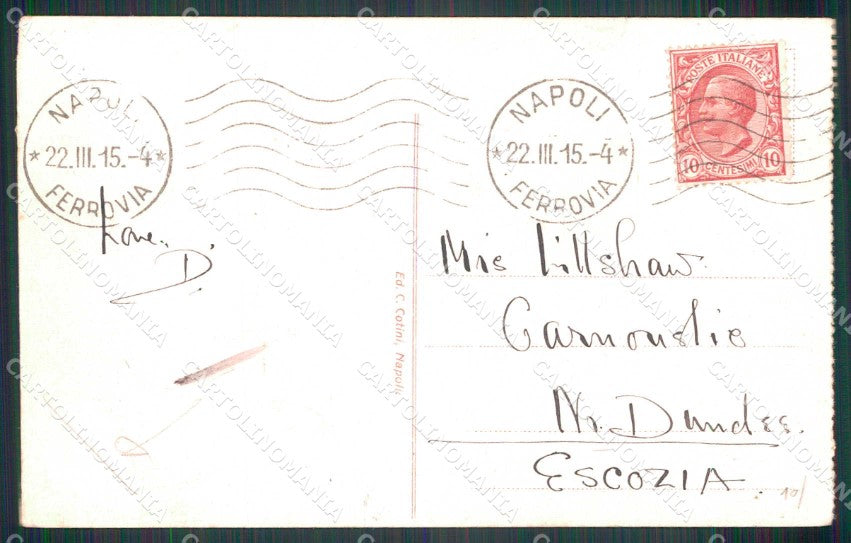 NAPOLI
* 22.III.15.-4 *
FERROVIA
NAPOLI
* 22.III.15.-4 *
FERROVIA
POSTE ITALIANE
10 CENTESIMI 10
Love..
D.
Ed. C. Cotini, Napoli
Mis Littshaw.
Carnoustie
Nr. Dundee.
ESCOZIA.
10/
CARTOLINOMANIA